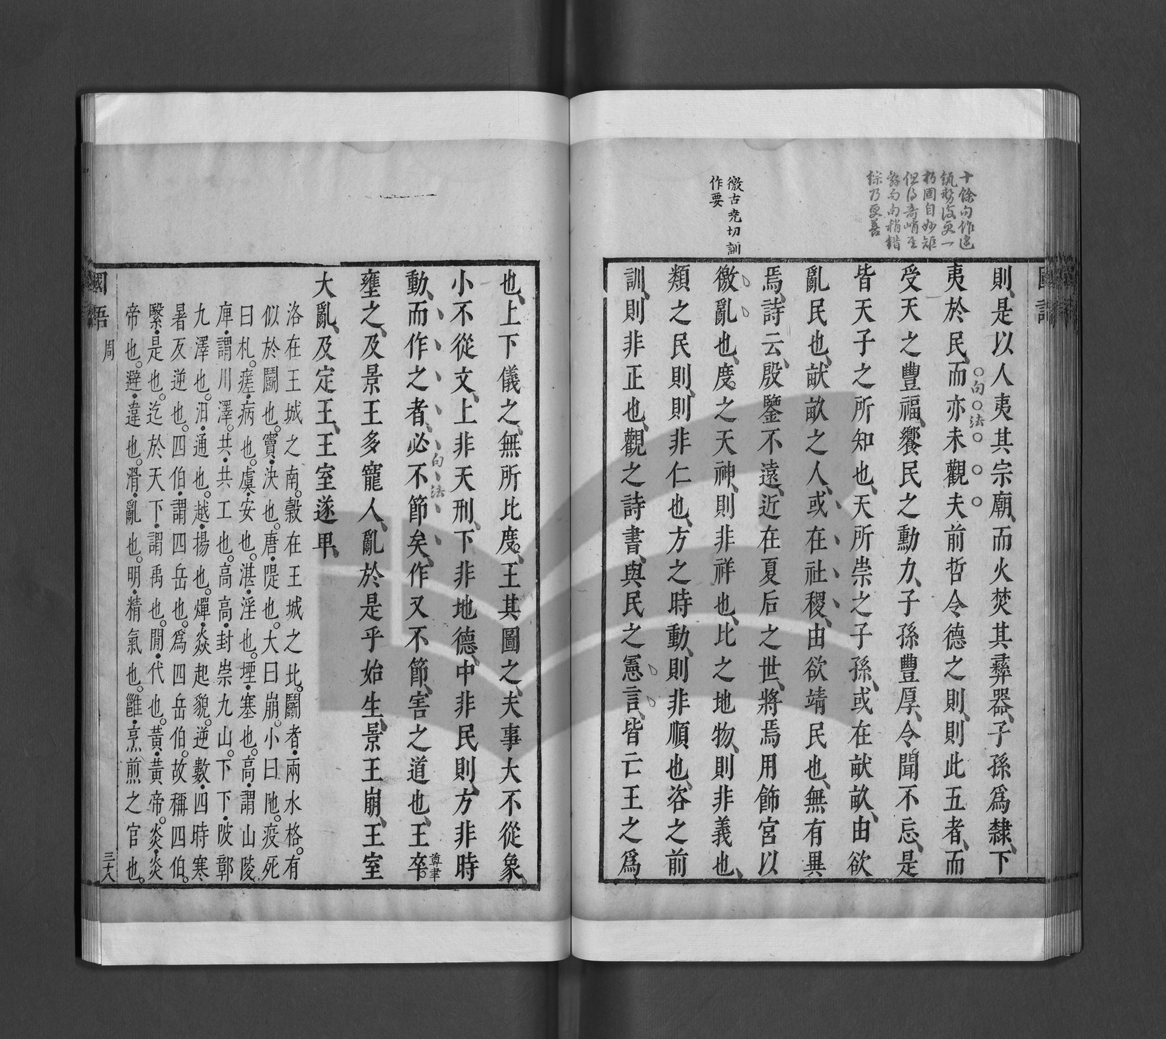 國語
則、是以人夷其宗廟、而火焚其彝器、子孫爲隸、下
夷於民、而亦未觀夫前哲令德之則、則此五者、而
句法
受天之豐福、饗民之勳力、子孫豐厚、令聞不忘、是
皆天子之所知也、天所崇之子孫、或在畎畝、由欲
亂民也、畎畝之人、或在社稷、由欲靖民也、無有異
焉、詩云、殷鑒不遠、近在夏后之世、將焉用飾宮以
徼亂也、度之天神、則非祥也、比之地物、則非義也、
類之民則、則非仁也、方之時動、則非順也、咨之前
訓、則非正也、觀之詩書、與民之憲言、皆亡王之爲
徵古堯切訓
作要
也、上下儀之、無所比度、王其圖之、夫事大不從象、
小不從文、上非天刑、下非地德、中非民則、方非時
動、而作之者、必不節矣、作又不節、害之道也、王卒
句法
壅之、及景王多寵人、亂於是乎始生、景王崩、王室
大亂、及定王、王室遂卑、
洛在王城之南。穀在王城之北。鬭者、兩水格。有
似於鬭也。竇、決也。唐、隄也。大曰崩。小曰阤。疫死
曰札。瘥、病也。虞、安也。湛、淫也。堙、塞也。高、謂山陵
庳、謂川澤。共、共工也。高高、封崇九山。下下、陂鄣
九澤也。汩、通也。越、揚也。燀、焱起貌。逆數、四時寒
暑反逆也。四伯、謂四岳也。爲四岳伯。故稱四伯。
繄、是也。迄於天下、謂禹也。閒、代也。黃、黃帝。炎、炎
帝也。避、違也。滑、亂也。明、精氣也。雝、烹煎之官也。
國語
周
三十八